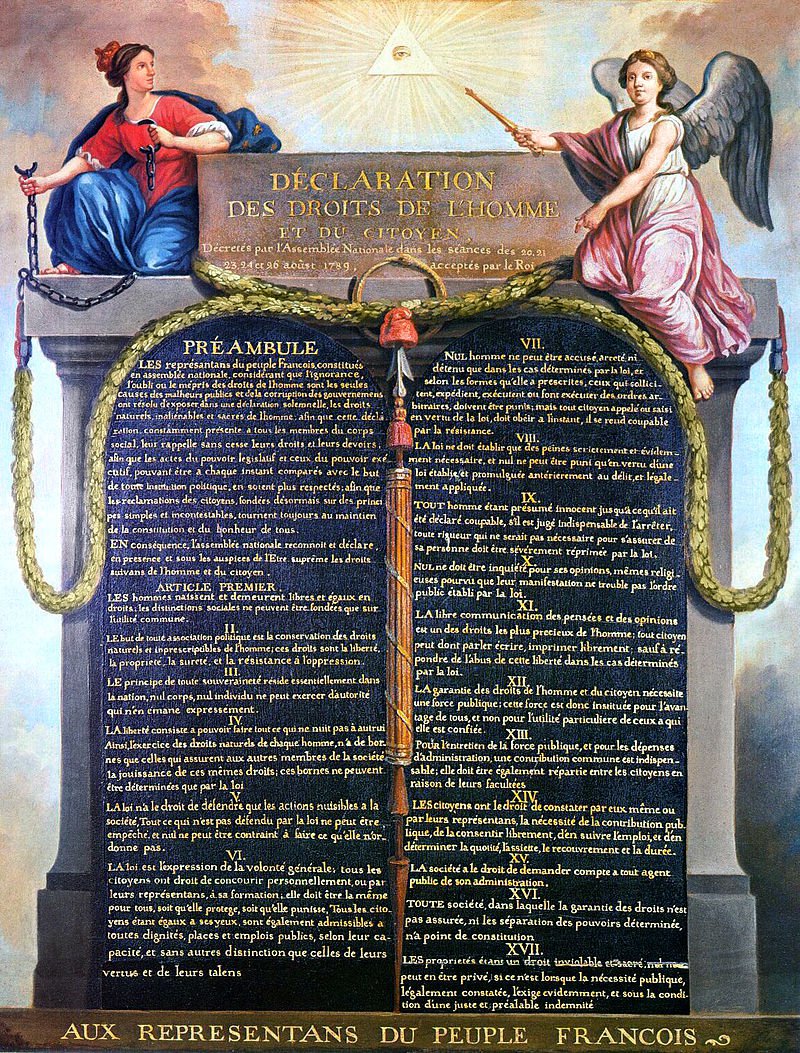 DÉCLARATION
DES DROITS DE L'HOMME
ET DU CITOYEN,
Décretés par l'Assemblée Nationale dans les séances des 20, 21
23, 24 et 26 aoûst 1789, acceptés par le Roi
PRÉAMBULE
LES représantans du peuple Francois, constitués
en assemblée nationale, considérant que l'ignorance,
l'oubli ou le mépris des droits de l'homme sont les seules
causes des malheurs publics et de la corruption des gouvernemens
ont résolu d'exposer dans une déclaration solemnelle, les droits
naturels, inaliénables et sacrés de l'homme; afin que cette décla
ration, constamment présente a tous les membres du corps
social, leur rappelle sans cesse leurs droits et leurs devoirs;
afin que les actes du pouvoir législatif et ceux du pouvoir exé
cutif, pouvant être a chaque instant comparés avec le but
de toute institution politique, en soient plus respectés; afin que
les reclamations des citoyens, fondées désormais sur des princi
pes simples et incontestables, tournent toujours au maintien
de la constitution et du bonheur de tous.
EN conséquence, l'assemblée nationale reconnoit et déclare,
en presence et sous les auspices de l'Etre suprême les droits
suivans de l'homme et du citoyen.
ARTICLE PREMIER.
LES hommes naissent et demeurent libres et égaux en
droits; les distinctions sociales ne peuvent être fondées que sur
l'utilité commune.
II.
LE but de toute association politique est la conservation des droits
naturels et inprescriptibles de l'homme; ces droits sont la liberté,
la proprieté, la sureté, et la résistance à l'oppression.
III.
LE principe de toute souveraineté réside essentiellement dans
la nation, nul corps, nul individu ne peut exercer d'autorité
qui n'en emane expressement.
IV.
LA liberté consiste a pouvoir faire tout ce qui ne nuit pas à autrui
Ainsi, l'exercice des droits naturels de chaque homme, n'a de bor
nes que celles qui assurent aux autres membres de la société
la jouissance de ces mêmes droits; ces bornes ne peuvent
être déterminées que par la loi
V.
LA loi n'a le droit de défendre que les actions nuisibles a la
société, Tout ce qui n'est pas défendu par la loi ne peut être
empêché, et nul ne peut être contraint à faire ce qu'elle n'or-
donne pas.
VI.
LA loi est l'expression de la volonté générale; tous les
citoyens ont droit de concourir personnellement, ou par
leurs représentans, à sa formation; elle doit être la même
pour tous, soit qu'elle protege, soit qu'elle punisse, Tous les cito
yens étant égaux a ses yeux, sont également admissibles a
toutes dignités, places et emplois publics, selon leur ca-
pacité, et sans autres distinction que celles de leurs
vertus et de leurs talens
VII.
NUL homme ne peut être accusé, arreté, ni
détenu que dans les cas déterminés par la loi, et
selon les formes qu'elle a prescrites, ceux qui sollici-
tent, expédient, exécutent ou font exécuter des ordres ar-
bitraires, doivent être punis; mais tout citoyen appelé ou saisi
en vertu de la loi, doit obéir a l'instant, il se rend coupable
par la résistance.
VIII.
LA loi ne doit établir que des peines strictement et évidem-
ment nécessaire, et nul ne peut être puni qu'en vertu d'une
loi établie et promulguée antérierement au délit, et légale-
ment appliquée.
IX.
TOUT homme étant présumé innocent jusqu'a ce qu'il ait
été déclaré coupable, s'il est jugé indispensable de l'arrêter,
toute rigueur qui ne serait pas nécessaire pour s'assurer de
sa personne doit être sévèrement réprimée par la loi.
X.
NUL ne doit être inquiété pour ses opinions, mêmes religi-
euses pourvu que leur manifestation ne trouble pas l'ordre
public établi par la loi.
XI.
LA libre communication des pensées et des opinions
est un des droits les plus precieux de l'homme; tout citoyen
peut dont parler écrire, imprimer librement; sauf à ré-
pondre de l'abus de cette liberté dans les cas déterminés
par la loi.
XII.
LA garantie des droits de l'homme et du citoyen nécessite
une force publique; cette force est donc instituée pour l'avan
tage de tous, et non pour l'utilité particuliere de ceux a qui
elle est confiée.
XIII.
POUR l'entretien de la force publique, et pour les dépenses
d'administration, une contribution commune est indispen-
sable; elle doit être également répartie entre les citoyens en
raison de leurs facultées
XIV.
LES citoyens ont le droit de constater par eux même ou
par leurs représentans, la nécessité de la contribution pub-
lique, de la consentir librement, d'en suivre l'emploi, et d'en
déterminer la quotité, l'assiette, le recouvrement et la durée.
XV.
LA société a le droit de demander compte a tout agent
public de son administration.
XVI.
TOUTE société, dans laquelle la garantie des droits n'est
pas assurée, ni les séparation des pouvoirs déterminée,
n'a point de constitution
XVII.
LES proprietés étant un droit inviolable et sacré, nul ne
peut en être privé, si ce n'est lorsque la nécessité publique,
légalement constatée, l'exige evidemment, et sous la condi
tion d'une juste et préalable indemnité
AUX REPRESENTANS DU PEUPLE FRANCOIS